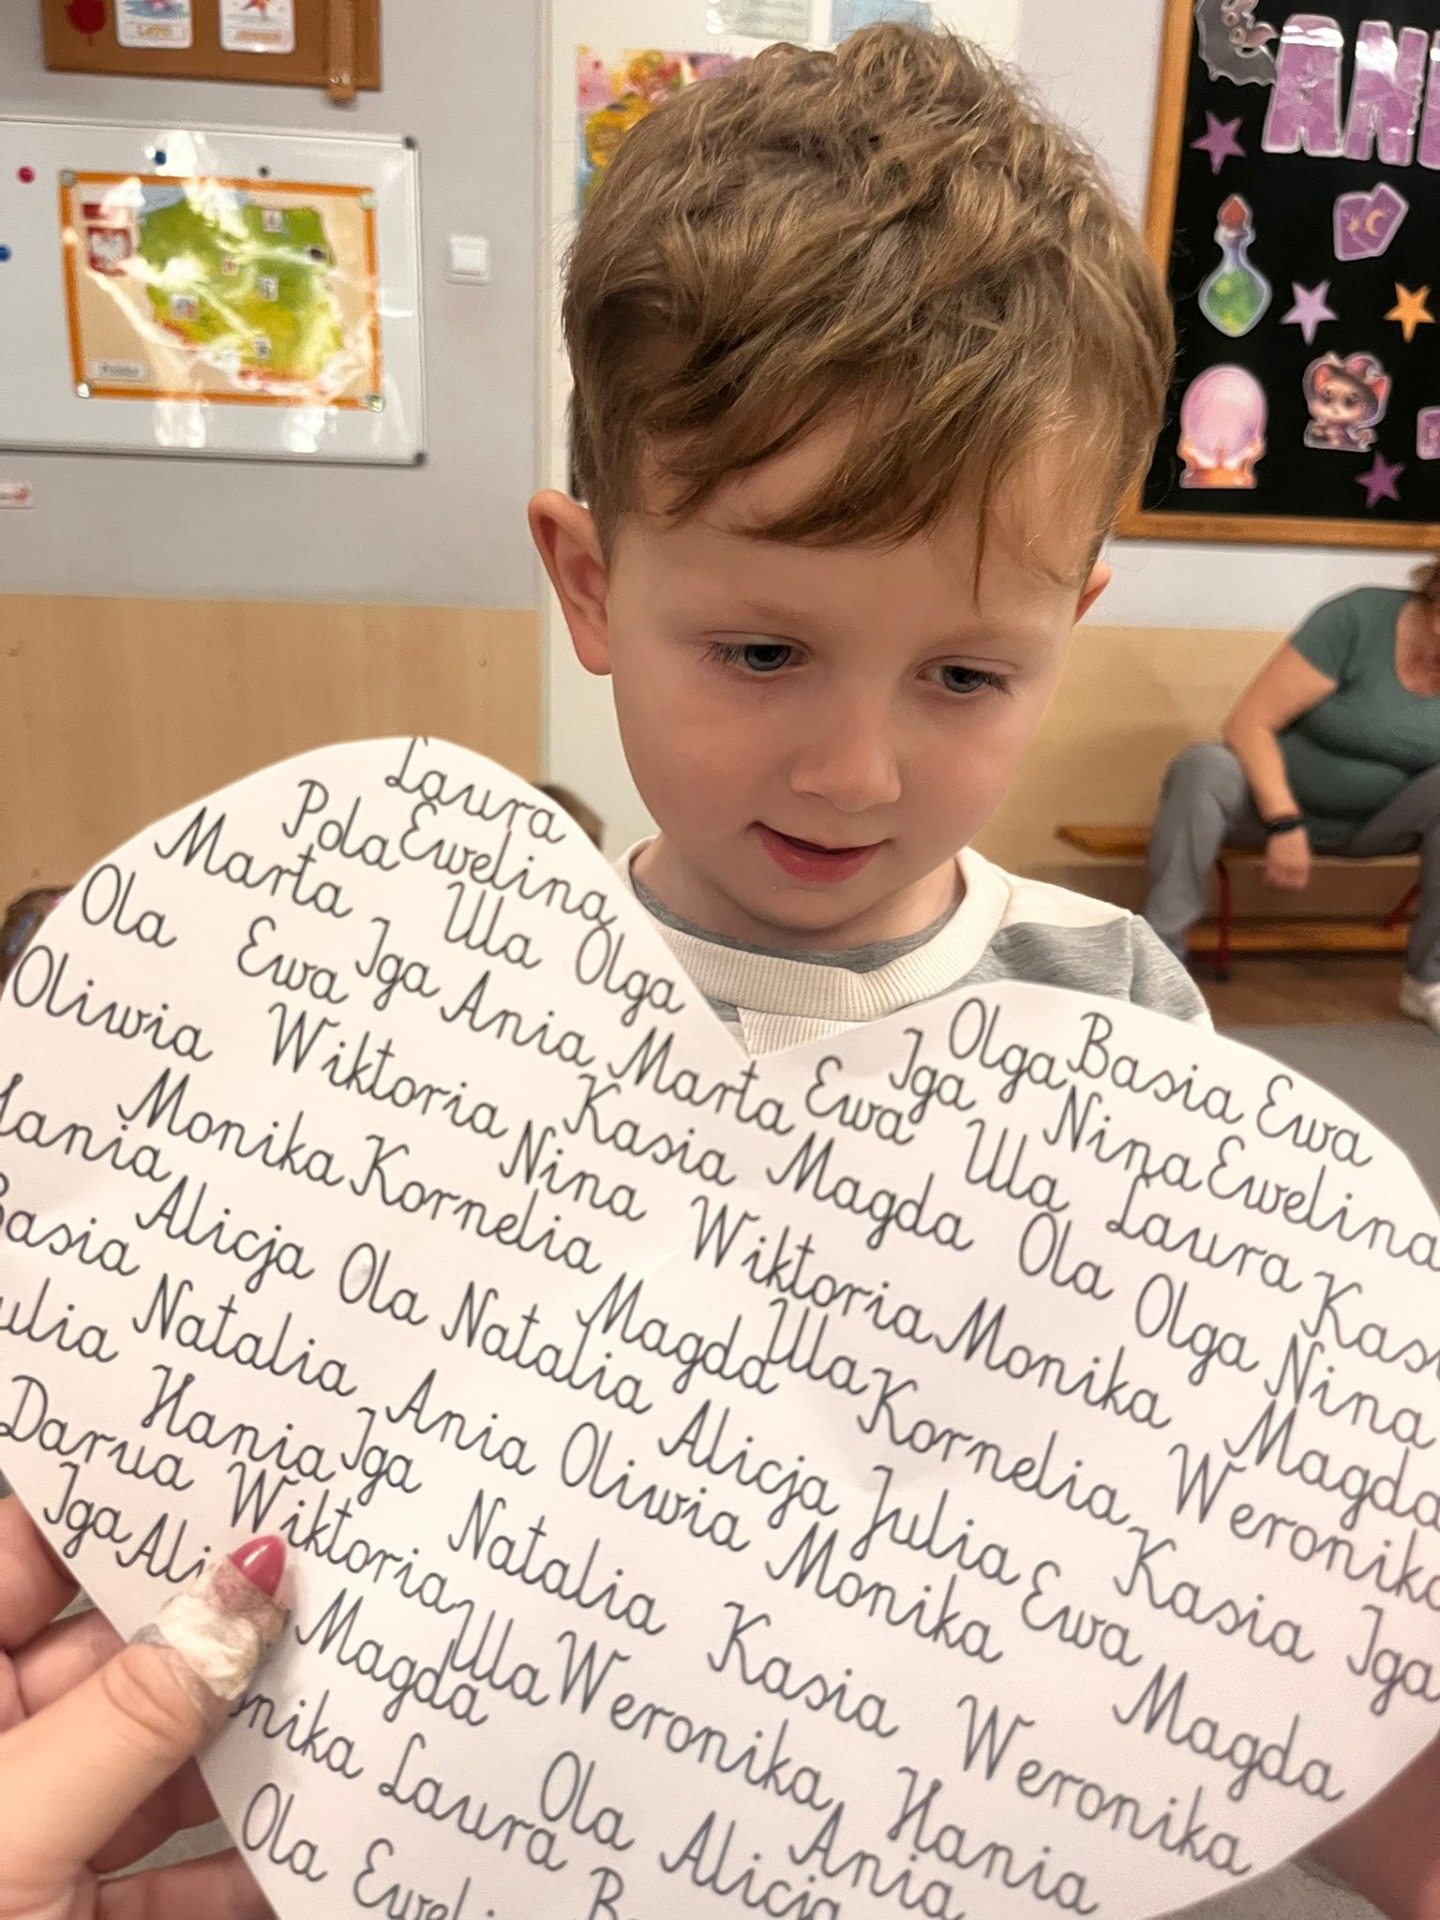 Laura
Pola Ewelina
Marta Ula Olga
Ola Ewa Iga Ania Marta Ewa Iga Olga Basia Ewa
Oliwia Wiktoria Kasia Magda Ula Nina Ewelina
Monika Kornelia Nina Wiktoria Ola Laura
Hania Alicja Ola Natalia Magda Ula Monika Olga Nina
Basia Natalia Ania Oliwia Alicja Kornelia Magda
Hania Iga Julia Weronika
Darua Wiktoria Natalia Monika Ewa Kasia Iga
Iga Magda Ula Weronika Kasia Magda
Laura Ola Hania Weronika
Ola Alicja Ania